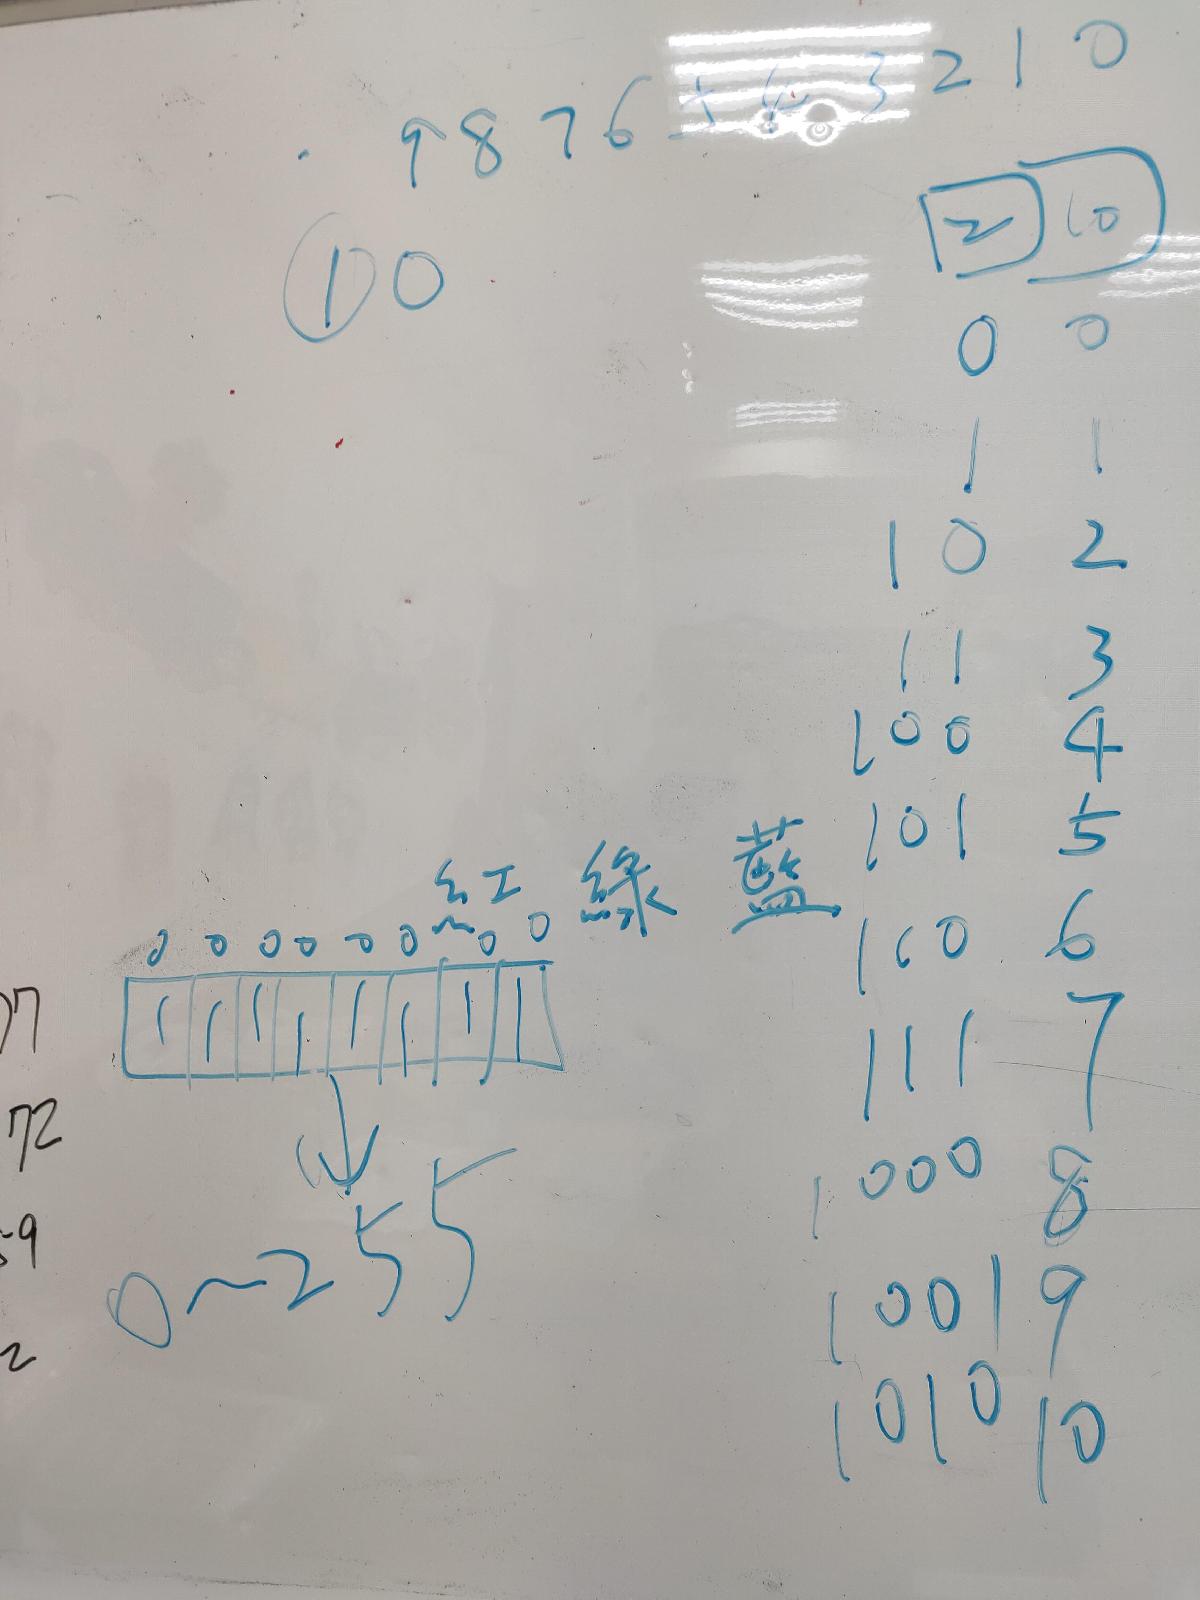 9 8 7 6 5 4 3 2 1 0
10
2 10
0 0
1 1
10 2
11 3
100 4
101 5
紅 綠 藍
110 6
0 0 0 0 0 0 0 0
1 1 1 1 1 1 1 1
111 7
72
1000 8
0~255
59
1001 9
2
1010 10